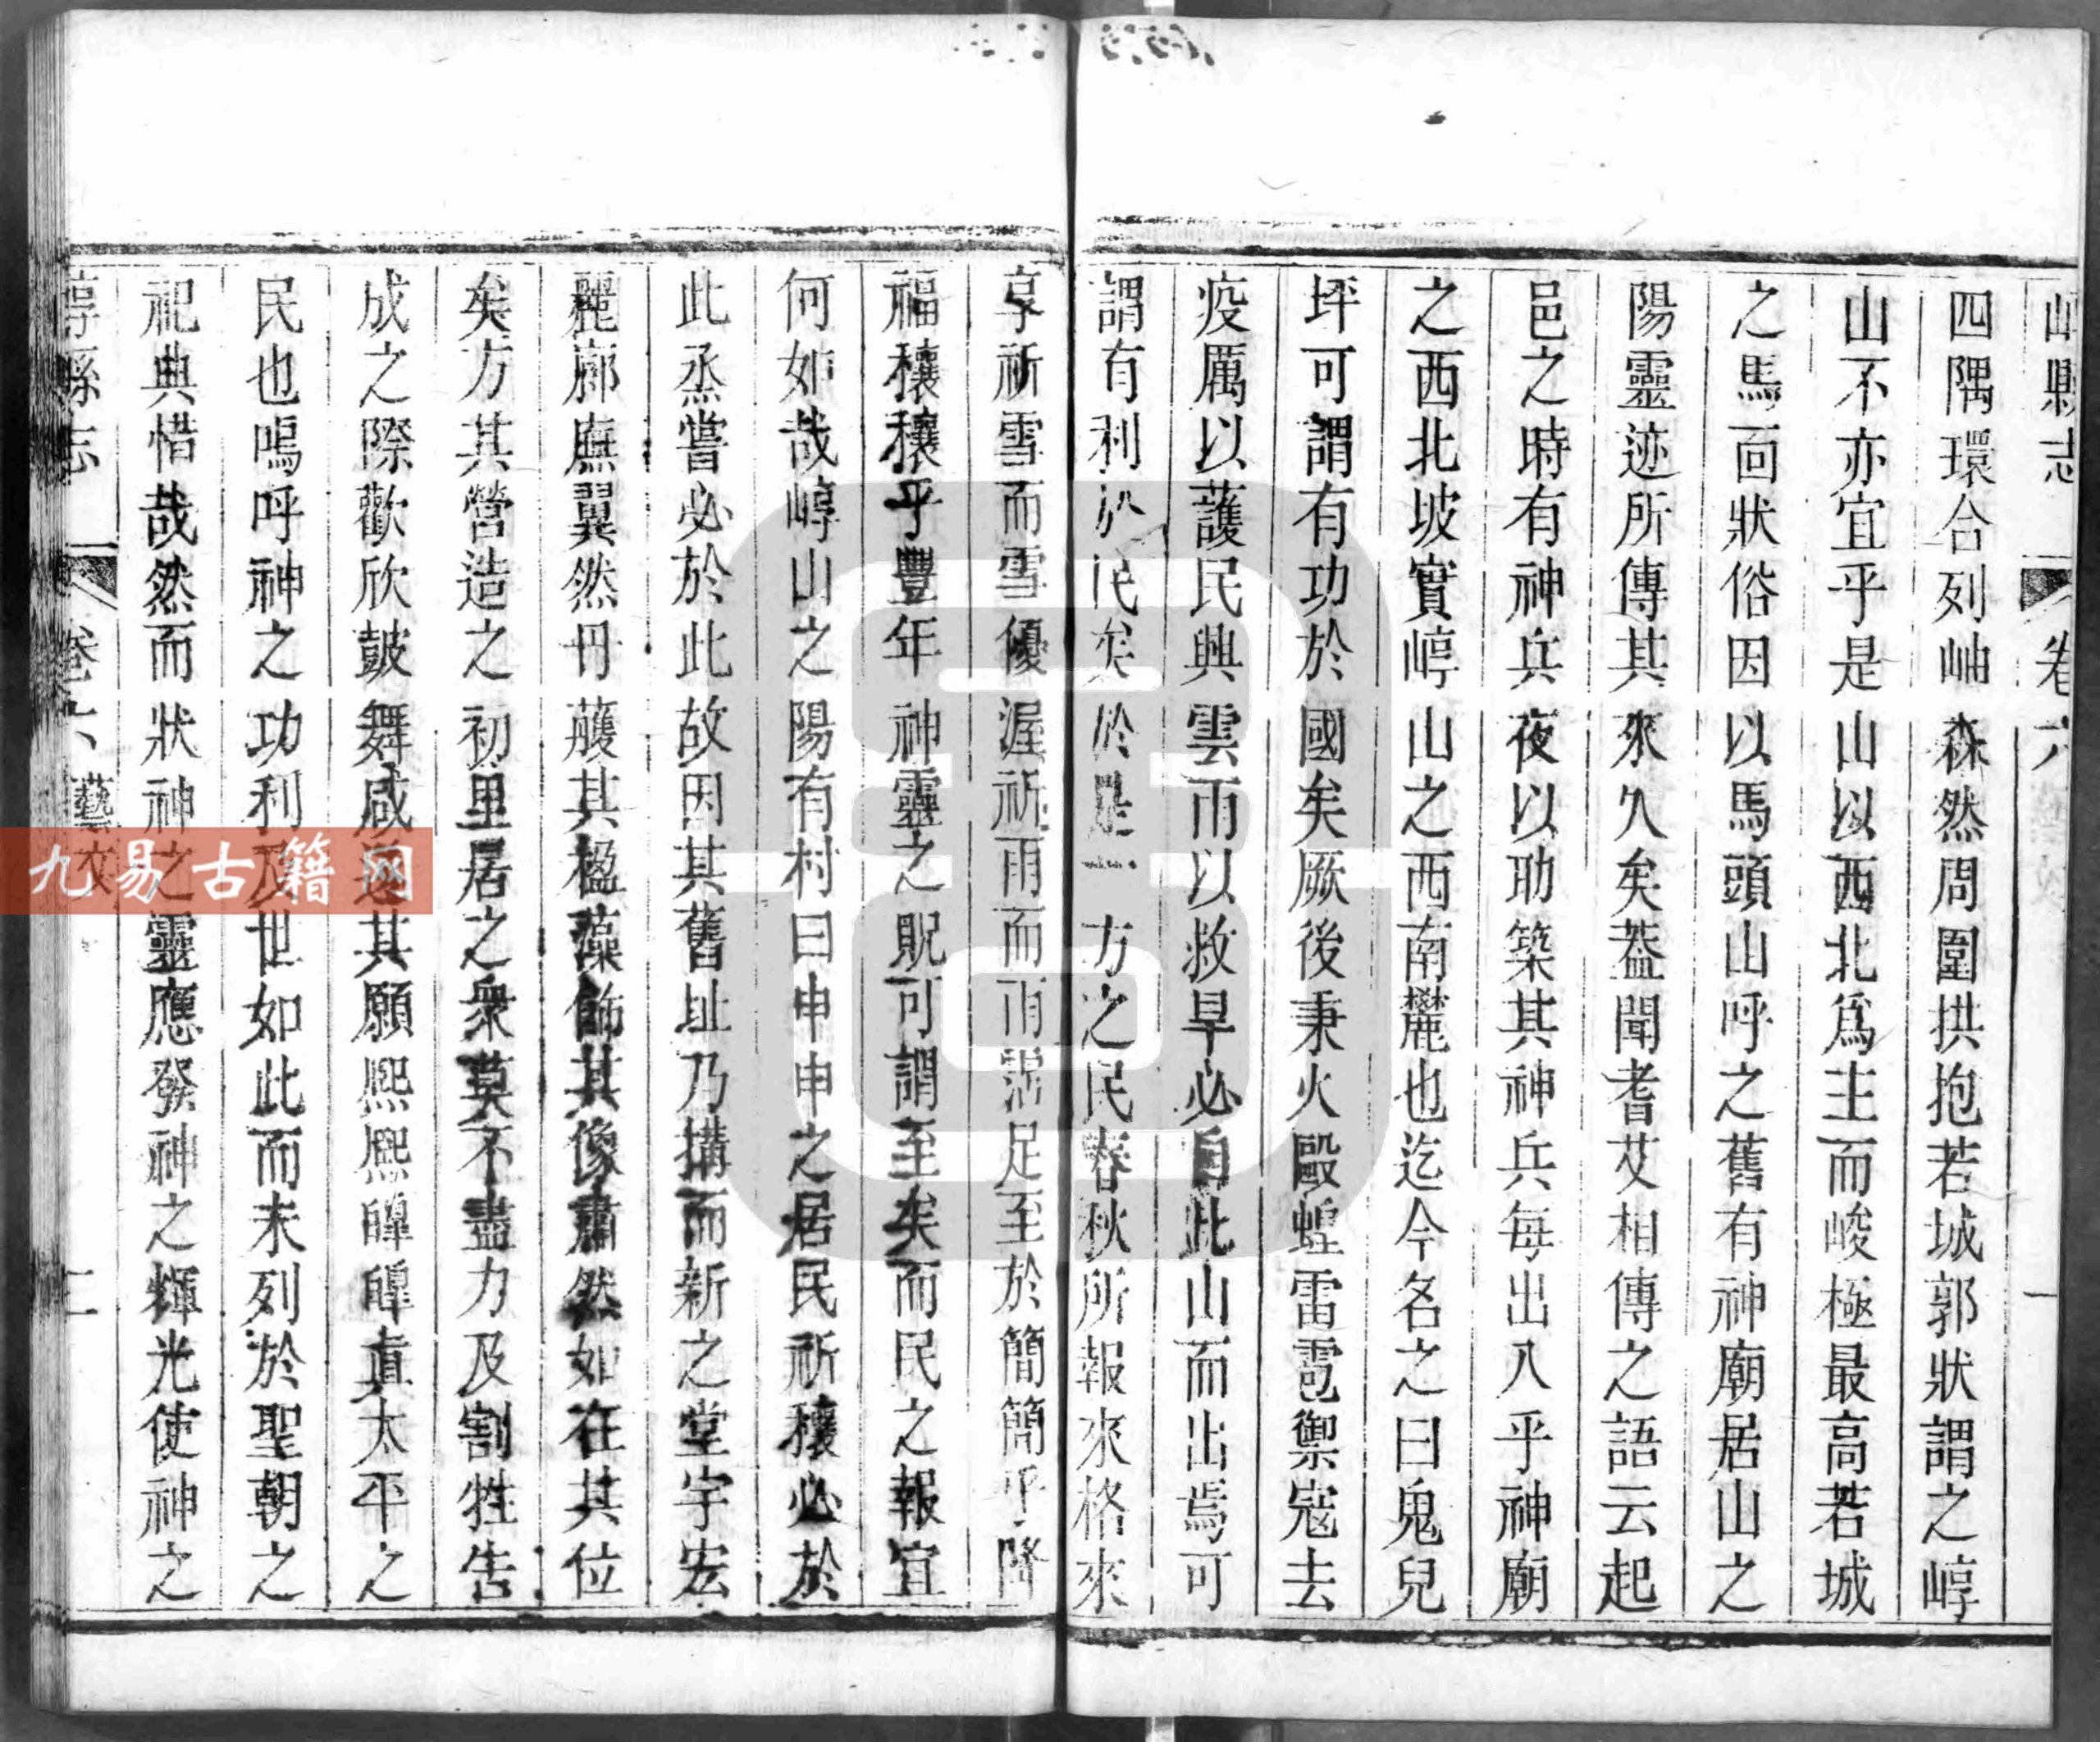 崞縣志 卷六 一
四隅環合列岫森然周圍拱抱若城郭狀謂之崞
山不亦宜乎是山以西北爲主而峻極最高若城
之馬面狀俗因以馬頭山呼之舊有神廟居山之
陽靈迹所傳其來久矣葢聞耆艾相傳之語云起
邑之時有神兵夜以助築其神兵每出入乎神廟
之西北坡實崞山之西南麓也迄今名之曰鬼兒
坪可謂有功於國矣厥後秉火毆蝗雷雹禦寇去
疫厲以護民興雲雨以救旱必自此山而出焉可
謂有利於民矣於是一方之民春秋所報來格來
享祈雪而雪優渥祈雨而雨霑足至於簡簡乎降
福穰穰乎豐年神靈之貺可謂至矣而民之報宜
何如哉崞山之陽有村曰申申之居民祈穰必於
此烝嘗必於此故因其舊址乃搆而新之堂宇宏
麗廊廡翼然丹雘其楹藻飾其像肅然如在其位
矣方其營造之初里居之衆莫不盡力及割牲告
成之際歡欣鼓舞咸遂其願熙熙皥皥真太平之
民也嗚呼神之功利及世如此而未列於聖朝之
祀典惜哉然而狀神之靈應發神之輝光使神之
崞縣志 卷六 藝文 二
九易古籍网